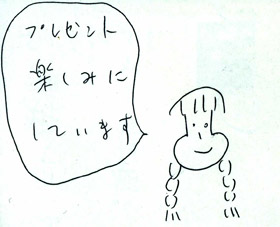 プレゼント
楽しみに
しています